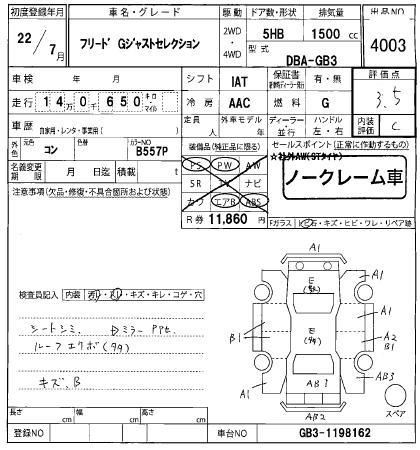 初度登録年月 車名・グレード 駆動 ドア数・形状 排気量 出品NO
22/7月 フリード Gジャストセレクション 2WD・4WD 5HB 1500cc 4003
型式 DBA-GB3
車検 年 月 シフト IAT 保証書 有・無 評価点
走行 14万0千650 キロ・マイル 冷房 AAC 燃料 G 3.5
車歴 自家用・レンタ・事業用( ) 定員 人 外車モデル 年 ディーラー 並行 ハンドル 左・右 内装評価 C
外色 元色 コン 色替 カラーNO B557P 装備品(純正品に限る) セールスポイント(正常に作動するもの)
名義変更期限 月 日迄 積載 t PS PW AW ☆社外AW(STタイヤ)
注意事項(欠品・修復・不具合箇所および状態) SR TV ナビ ノークレーム車
カワ エアB ABS
R券 11,860円 Fガラス トビ石・キズ・ヒビ・ワレ・リペア跡
A1
検査員記入 内装 キズ・キレ・コゲ・穴 E A1
シートシミ、Dミラー A1
ルーフエクボ(多々) B1 E (多々) A2
B1
キズ、B A1 AB3 AB3
AB2 スペア
長さ cm 幅 cm 高さ cm
登録NO 車台NO GB3-1198162